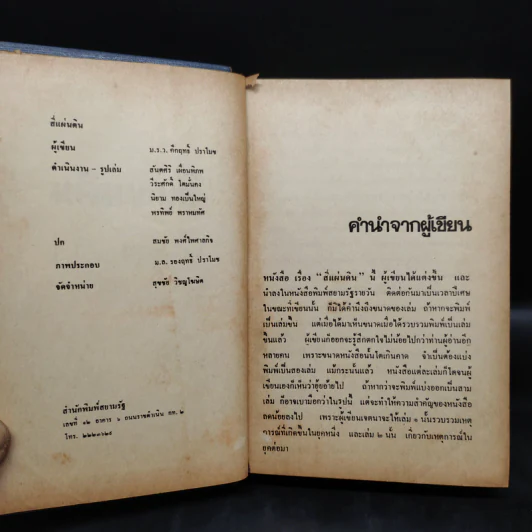 สี่แผ่นดิน
ผู้เขียน ม.ร.ว. คึกฤทธิ์ ปราโมช
ดำเนินงาน - รูปเล่ม สันตศิริ เผือนพิภพ
วีระศักดิ์ ไตมั่นคง
นิยาม ทองเป็นใหญ่
ทรทิพย์ พราหมทัศ
ปก สมชัย พงศ์ไพศาลกิจ
ภาพประกอบ ม.ล. รองฤทธิ์ ปราโมช
จัดจำหน่าย สุขชัย วิชญโฆษิต
สำนักพิมพ์สยามรัฐ
เลขที่ ๑๒ อาคาร ๖ ถนนราชดำเนิน กท. ๒
โทร.
คำนำจากผู้เขียน
หนังสือ เรื่อง "สี่แผ่นดิน" นี้ ผู้เขียนได้แต่งขึ้น และ
นำลงในหนังสือพิมพ์สยามรัฐรายวัน ติดต่อกันมาเป็นเวลาปีเศษ
ในขณะที่เขียนนั้น ก็มิได้คำนึงถึงขนาดของเล่ม ถ้าหากจะพิมพ์
เป็นเล่มขึ้น แต่เมื่อได้มาเห็นขนาดเมื่อได้รวบรวมพิมพ์เป็นเล่ม
ขึ้นแล้ว ผู้เขียนก็ออกจะรู้สึกตกใจไม่น้อยไปกว่าท่านผู้อ่านอีก
หลายคน เพราะขนาดหนังสือนั้นโตเกินคาด จำเป็นต้องแบ่ง
พิมพ์เป็นสองเล่ม แม้กระนั้นแล้ว หนังสือแต่ละเล่มก็โตจนผู้
เขียนเองก็เห็นว่าอุ้ยอ้ายไป ถ้าหากว่าจะพิมพ์แบ่งออกเป็นสาม
เล่ม ก็อาจเบามือกว่าในรูปนี้ แต่จะทำให้ความสำคัญของหนังสือ
ลดน้อยลงไป เพราะผู้เขียนเจตนาจะให้เล่ม ๑ นั้นรวบรวมเหตุ
การณ์ที่เกิดขึ้นในยุคหนึ่ง และเล่ม ๒ นั้น เกี่ยวกับเหตุการณ์ใน
ยุคต่อมา